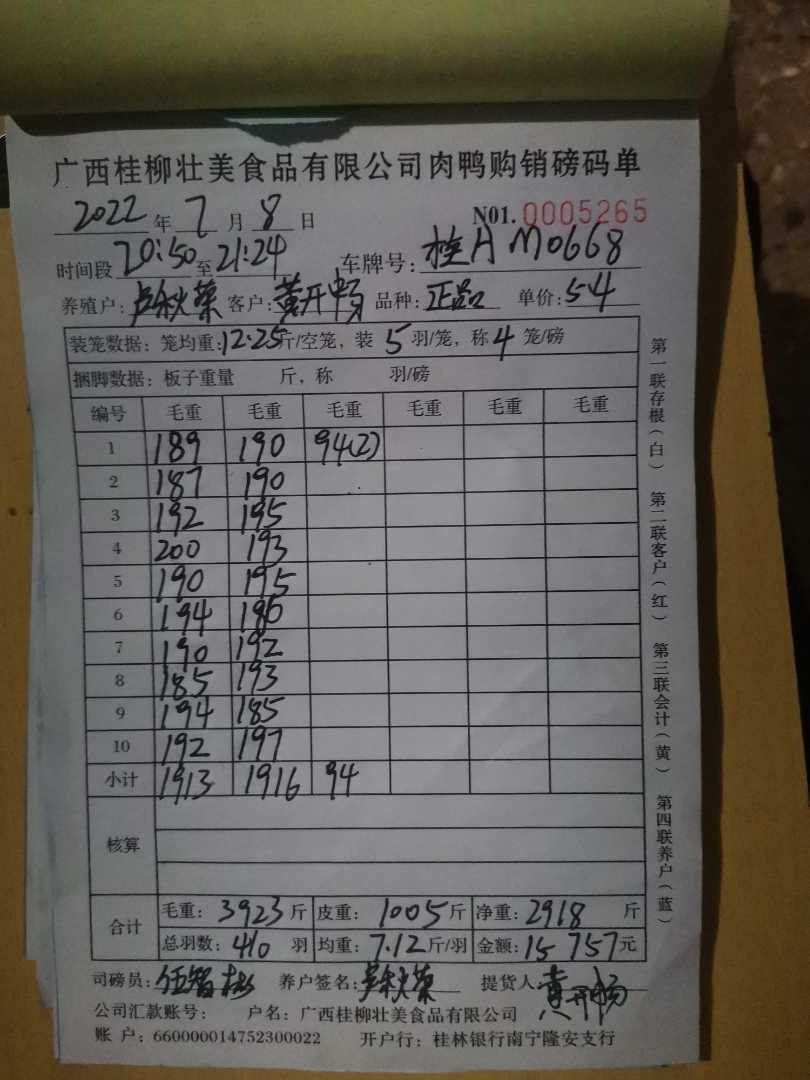 广西桂柳壮美食品有限公司肉鸭购销磅码单
2022 年 7 月 8 日 N01. 0005265
时间段 20:50 至 21:24 车牌号: 桂A M0668
养殖户: 卢秋荣 客户: 黄开畅 品种: 正品 单价: 5.4
装笼数据: 笼均重: 12.25 斤/空笼, 装 5 羽/笼, 称 4 笼/磅
捆脚数据: 板子重量 斤, 称 羽/磅
编号 毛重 毛重 毛重 毛重 毛重 毛重
1 189 190 94(2)
2 187 190
3 192 195
4 200 193
5 190 195
6 194 186
7 190 192
8 185 193
9 194 185
10 192 197
小计 1913 1916 94
核算
合计 毛重: 3923 斤 皮重: 1005 斤 净重: 2918 斤
总羽数: 410 羽 均重: 7.12 斤/羽 金额: 15757 元
司磅员: 伍智彬 养户签名: 卢秋荣 提货人 黄开畅
公司汇款账号: 户名: 广西桂柳壮美食品有限公司
账户: 660000014752300022 开户行: 桂林银行南宁隆安支行
第一联存根(白) 第二联客户(红) 第三联会计(黄) 第四联养户(蓝)